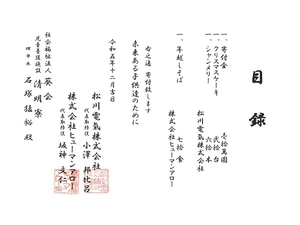 目録
一、寄付金 壱拾萬圓
一、クリスマスケーキ 弐拾台
一、シャンメリー 六拾本
松川電氣株式会社
一、年越しそば 七拾食
株式会社ヒューマンアロー
右之通 寄付致します
未来ある子供達のために
令和五年十二月吉日
松川電氣株式会社
代表取締役 小澤邦比呂
株式会社ヒューマンアロー
代表取締役 坂神文仁
社会福祉法人 葵会
児童養護施設 清明寮
理事長 石塚猛裕殿